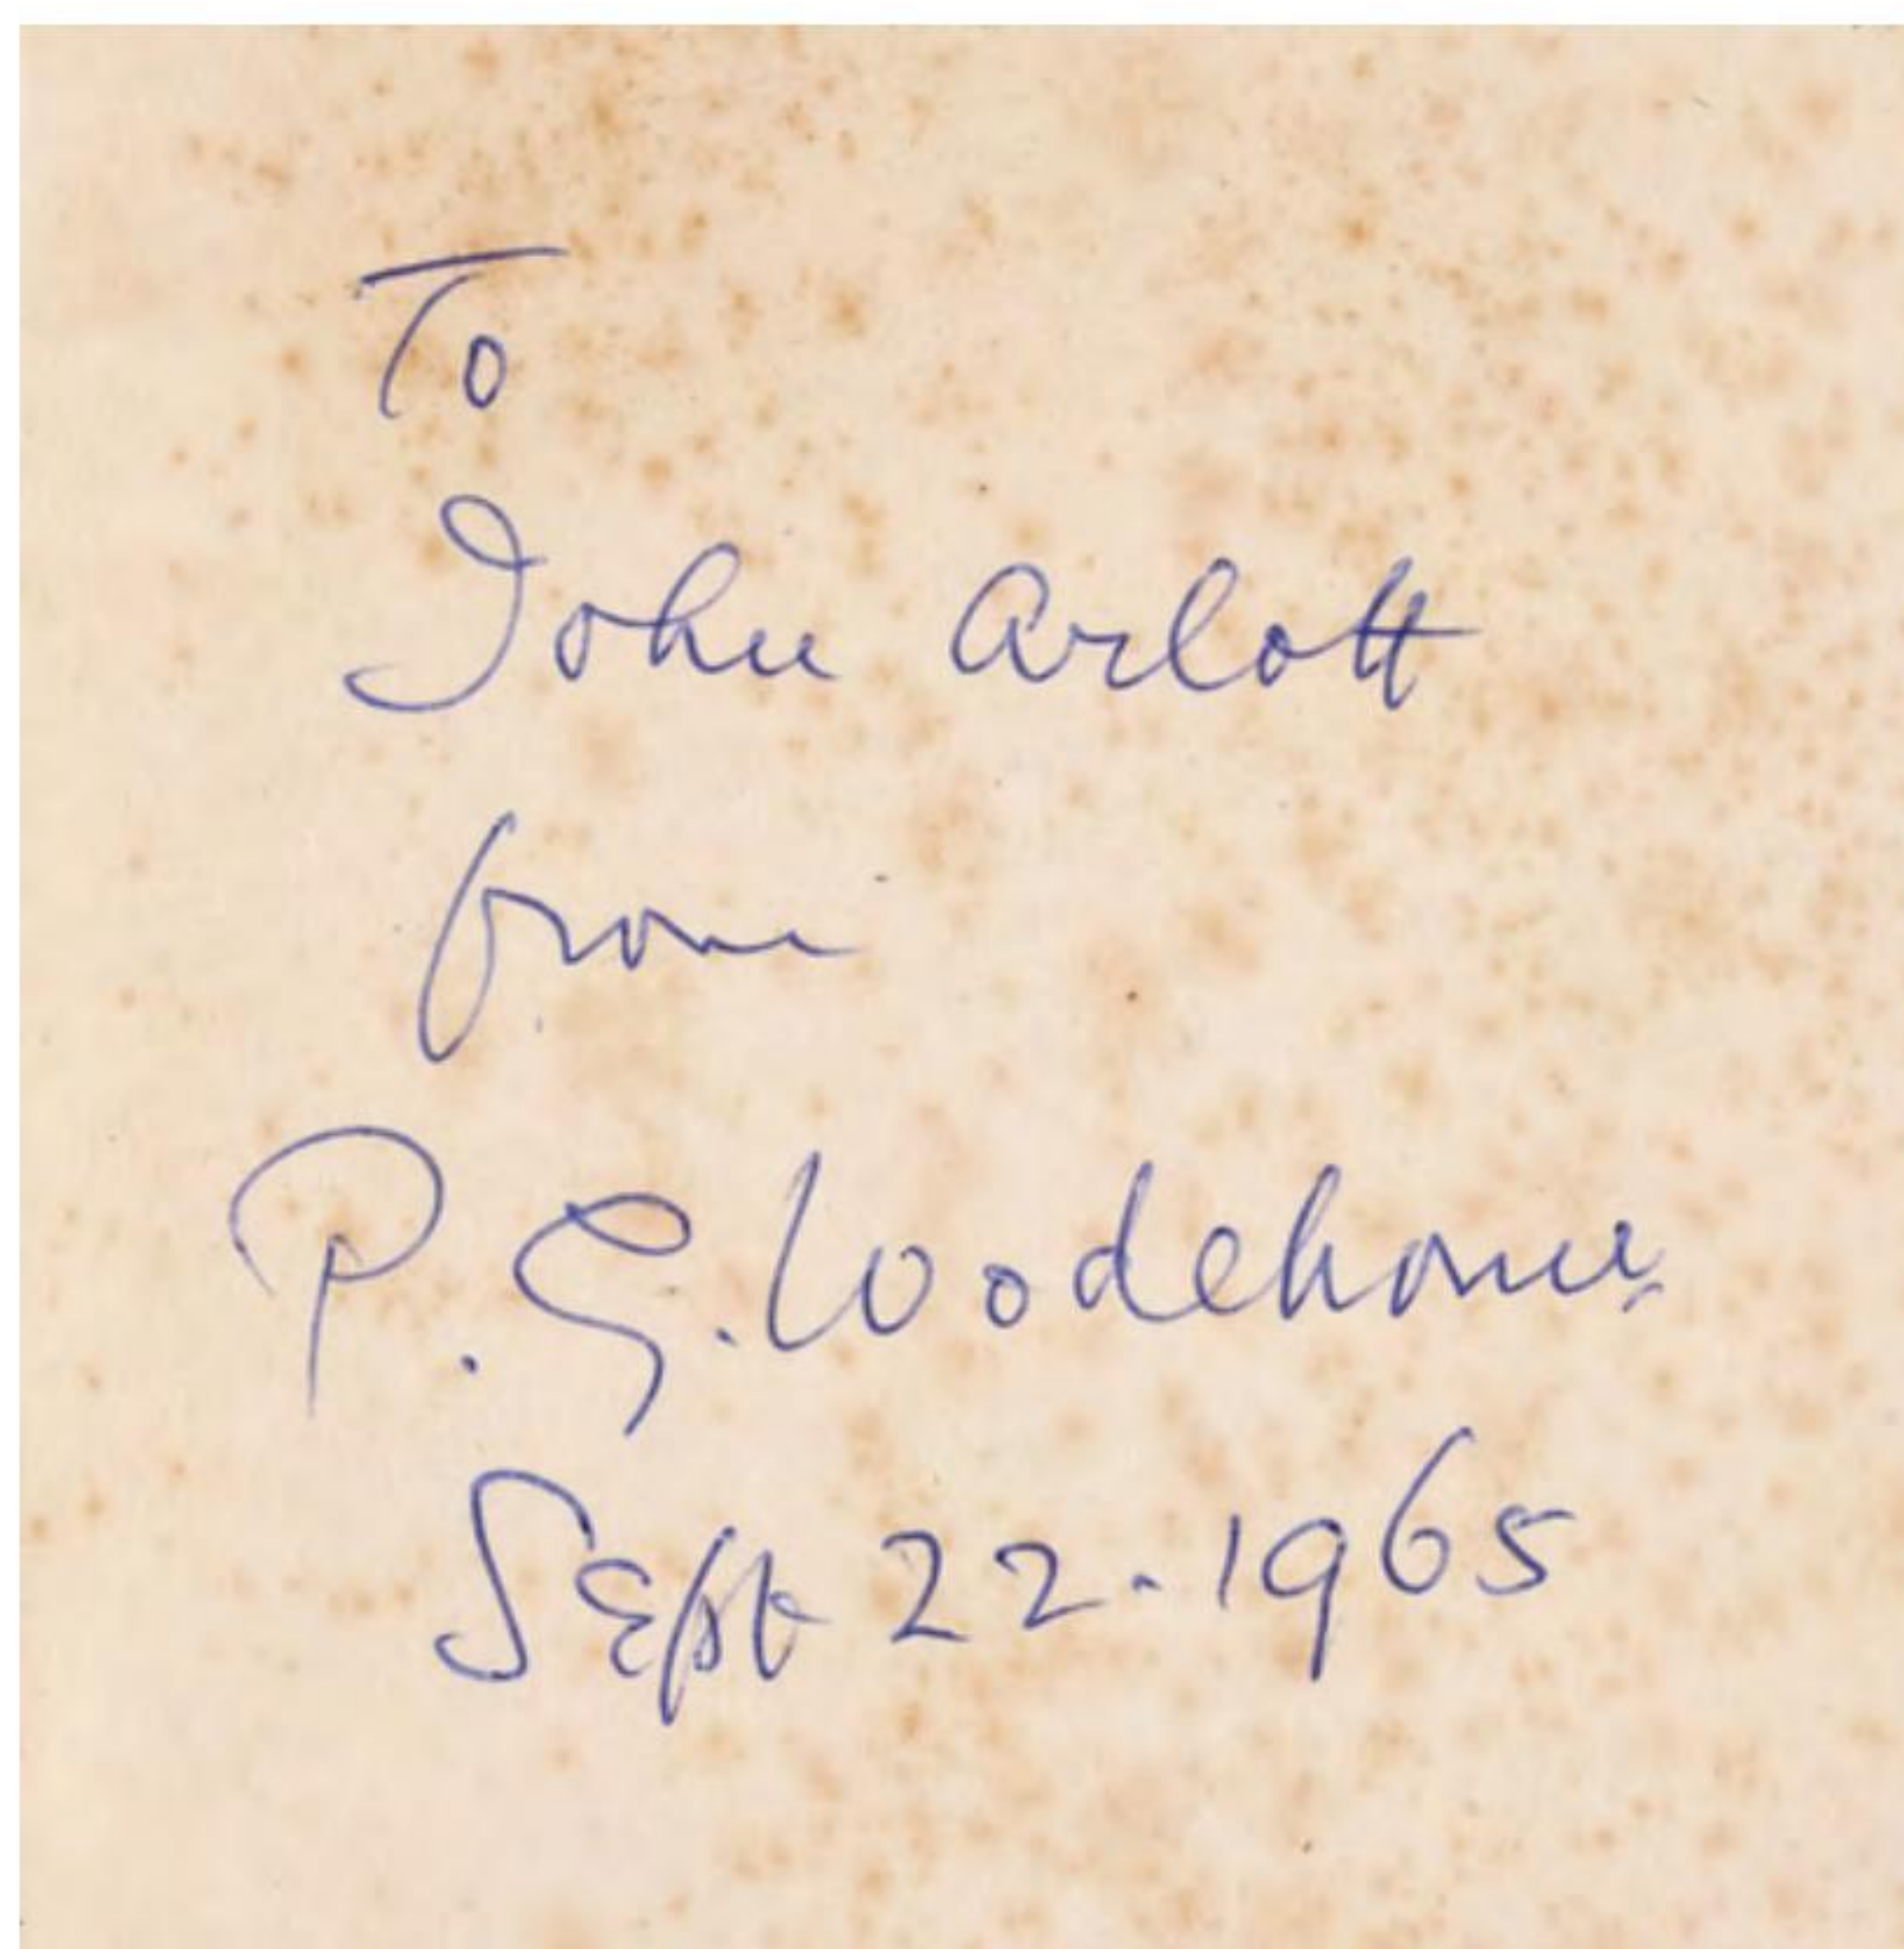 To
John Arlott
from
P.G. Wodehouse
Sept 22. 1965